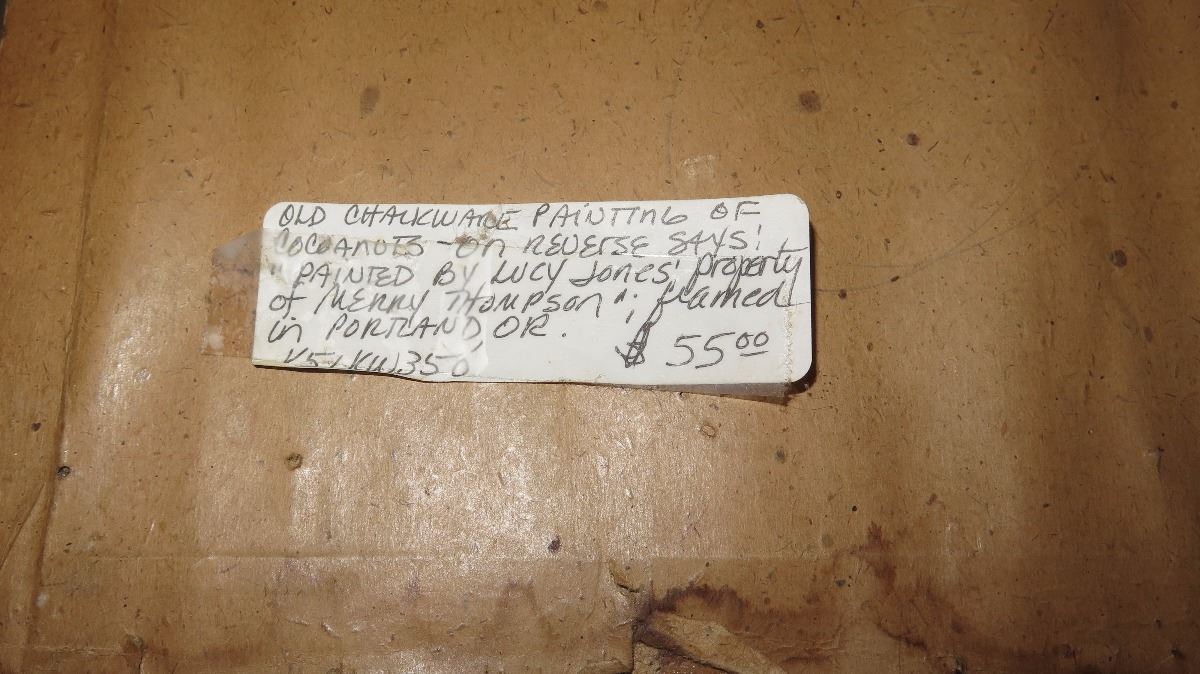 OLD CHALKWARE PAINTING OF
COCOANUTS - On REVERSE SAYS:
"PAINTED BY LUCY Jones' property
of MERRY THOMPSON"; framed
in PORTLAND, OR.
$ 55.00